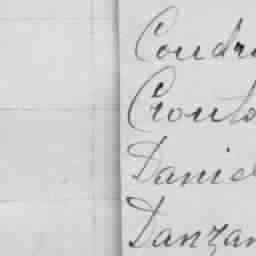 Coudr
Crouto
Danie
Danzan